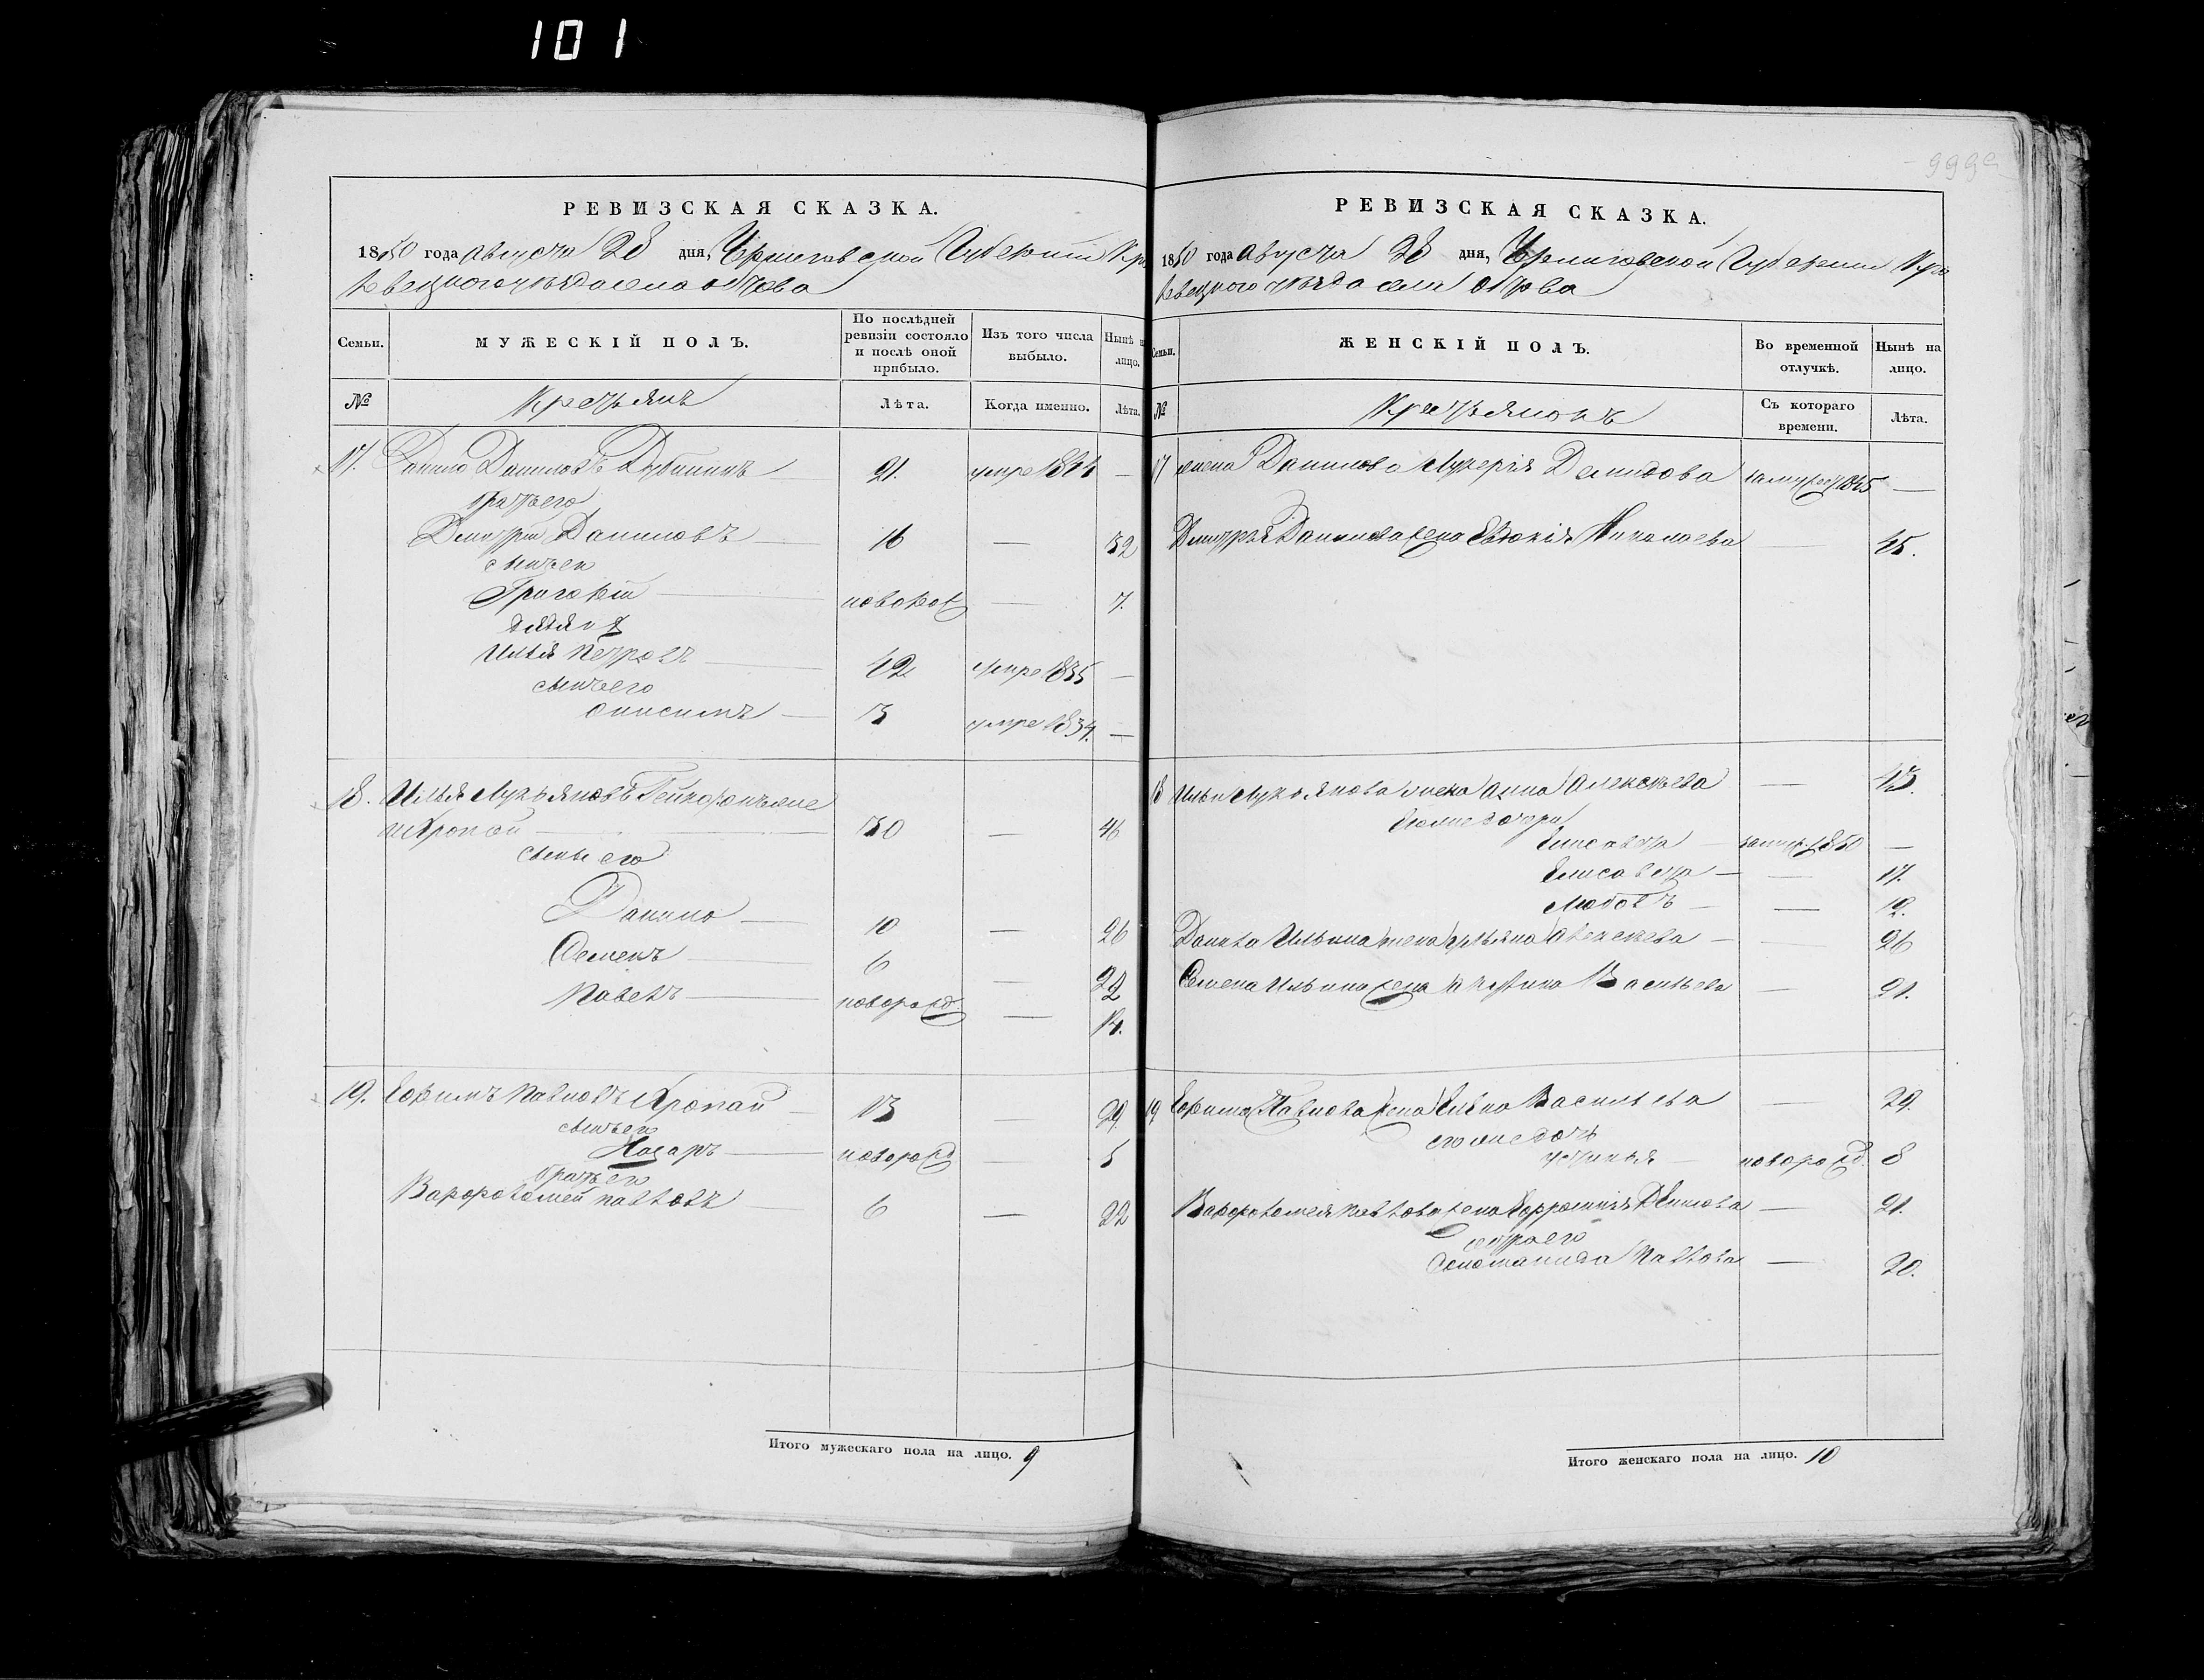 101
РЕВИЗСКАЯ СКАЗКА.
1850 года августа 28 дня, Черниговской Губернии Кро
левецкого уезда села
Семьи.
МУЖЕСКІЙ ПОЛЪ.
По послѣдней ревизіи состояло и послѣ оной прибыло.
Изъ того числа выбыло.
Нынѣ на лицо.
№
Крестьянъ
Лѣта.
Когда именно.
Лѣта.
17. Данило Даниловъ 21. умре 1844 —
братъ его
Дмитрій Даниловъ 16 — 32
сынъ его
Григорій новорож — 7.
дядя их
Илья Петровъ 42 умре 1835 —
сынъ его
Онисимъ 13 умре 1834. —
18. Илья Лукьяновъ
Кропай 30 — 46
сыны его
Данило 10 — 26
Семенъ 6 — 22
Павелъ новорожд — 14.
19. Ефимъ Павловъ Кропай 13 — 29.
сынъ его
Назаръ новорожд — 5
братъ его
Варфоломей Павловъ 6 — 22
Итого мужескаго пола на лицо. 9
999
РЕВИЗСКАЯ СКАЗКА.
1850 года августа 28 дня, Черниговской Губернии Кро
левецкого уезда села
Семьи.
ЖЕНСКІЙ ПОЛЪ.
Во временной отлучкѣ.
Нынѣ на лицо.
№
Крестьянокъ
Съ котораго времени.
Лѣта.
17 Данилова Лукерія Демидова 1845 —
Дмитрія Данилова жена Евдокія Николаева — 45.
18 Ильи Лукьянова жена Анна Алексѣева — 43.
его же дочери
1850 —
Елисавета — 17.
Любовь — 12.
Данила Ильина жена Ульяна Алексѣева — 26
Семена Ильина жена Васильева — 21.
19 Ефима Павлова жена Васильева — 29.
его же дочь
Устинья новорожд. 8
Варфоломея Павлова жена — 21.
сестра его
Павлова — 20.
Итого женскаго пола на лицо. 10